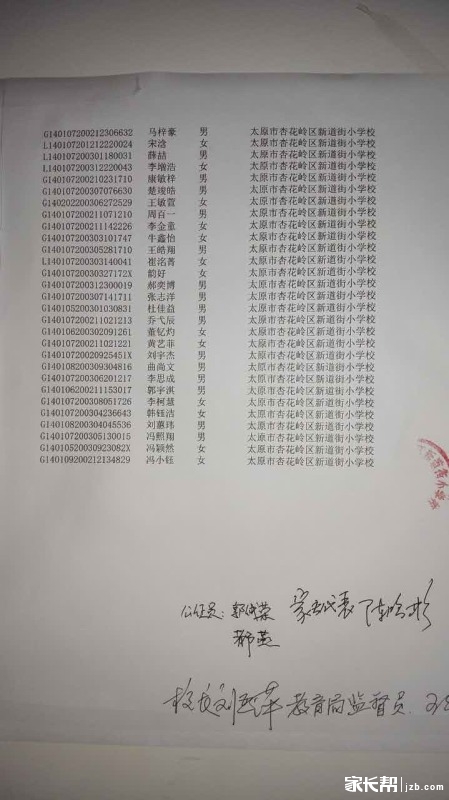 G140107200212306632 马梓豪 男 太原市杏花岭区新道街小学校
L140107201212220024 宋淰 女 太原市杏花岭区新道街小学校
L140107200301180031 薛喆 男 太原市杏花岭区新道街小学校
L140107200312220043 李增浩 女 太原市杏花岭区新道街小学校
G140107200210231710 康敏梓 男 太原市杏花岭区新道街小学校
G140107200307076630 楚竣皓 男 太原市杏花岭区新道街小学校
G140202200306272529 王敏萱 女 太原市杏花岭区新道街小学校
G140107200211071210 周百一 男 太原市杏花岭区新道街小学校
G140107200211142226 李金童 女 太原市杏花岭区新道街小学校
G140107200303101747 牛鑫怡 女 太原市杏花岭区新道街小学校
G140107200305281710 王皓翔 男 太原市杏花岭区新道街小学校
L140107200303140041 崔洺菁 女 太原市杏花岭区新道街小学校
G14010720030327172X 韵好 女 太原市杏花岭区新道街小学校
G140107200312300019 郝奕博 男 太原市杏花岭区新道街小学校
G140107200307141711 张志洋 男 太原市杏花岭区新道街小学校
G140105200301030831 杜佳益 男 太原市杏花岭区新道街小学校
G140107200211021213 乔弋辰 男 太原市杏花岭区新道街小学校
G140106200302091261 董钇灼 女 太原市杏花岭区新道街小学校
G140107200211021221 黄艺菲 女 太原市杏花岭区新道街小学校
G14010720020925451X 刘宇杰 男 太原市杏花岭区新道街小学校
G140108200309304816 曲尚文 男 太原市杏花岭区新道街小学校
G140107200306201217 李思成 男 太原市杏花岭区新道街小学校
G140106200211153017 郭宇淇 男 太原市杏花岭区新道街小学校
G140107200308051726 李柯慧 女 太原市杏花岭区新道街小学校
G140107200304236643 韩钰洁 女 太原市杏花岭区新道街小学校
G140108200304045536 刘蕙玮 男 太原市杏花岭区新道街小学校
G140107200305130015 冯熙翔 男 太原市杏花岭区新道街小学校
G14010520030923082X 冯颖然 女 太原市杏花岭区新道街小学校
G140109200212134829 冯小钰 女 太原市杏花岭区新道街小学校
公证员: 家长代表
校长 教育局监督员
家长帮 jzb.com